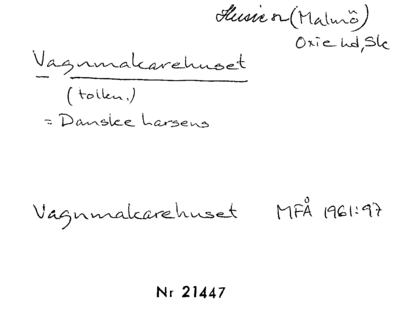 Husie sn (Malmö)
Oxie hd, Sk
Vagnmakarehuset
(tolkn.)
= Danske larsens
Vagnmakarehuset MFÅ 1961:97
Nr 21447